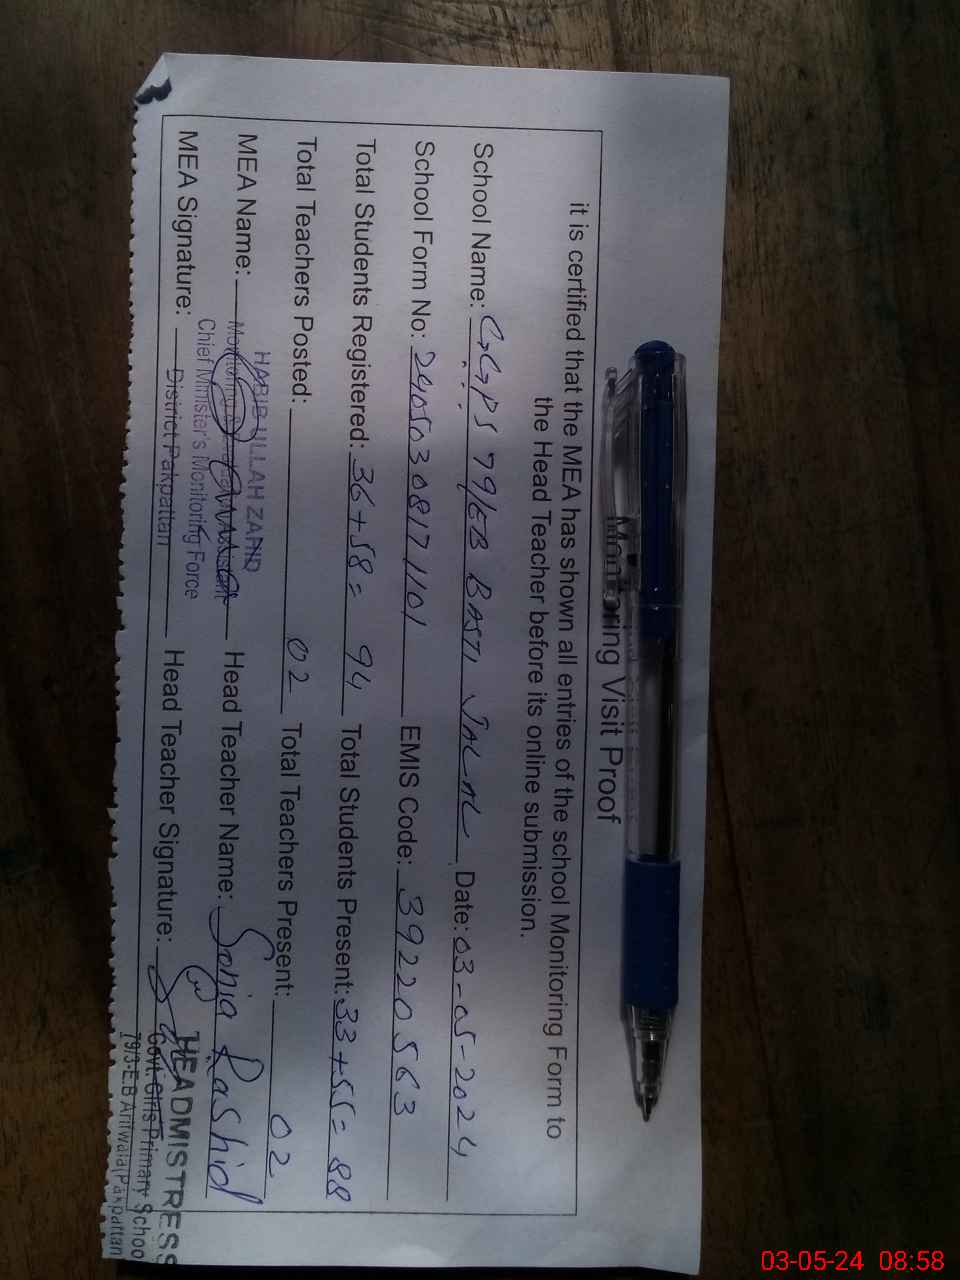 Monitoring Visit Proof
it is certified that the MEA has shown all entries of the school Monitoring Form to
the Head Teacher before its online submission.
School Name: GGPS 79/EB BASTI JALAL Date: 03-05-2024
School Form No: 24050308171101 EMIS Code: 39220563
Total Students Registered: 36+58= 94 Total Students Present: 33+55= 88
Total Teachers Posted: 02 Total Teachers Present: 02
HABIB ULLAH ZAHID
MEA Name: Monitoring Head Teacher Name: Sonia Rashid
Chief Minister's Monitoring Force
MEA Signature: District Pakpattan Head Teacher Signature:
HEADMISTRESS
Govt. Girls Primary Schoo
79/3-E.B Arifwala(Pakpattan
03-05-24 08:58